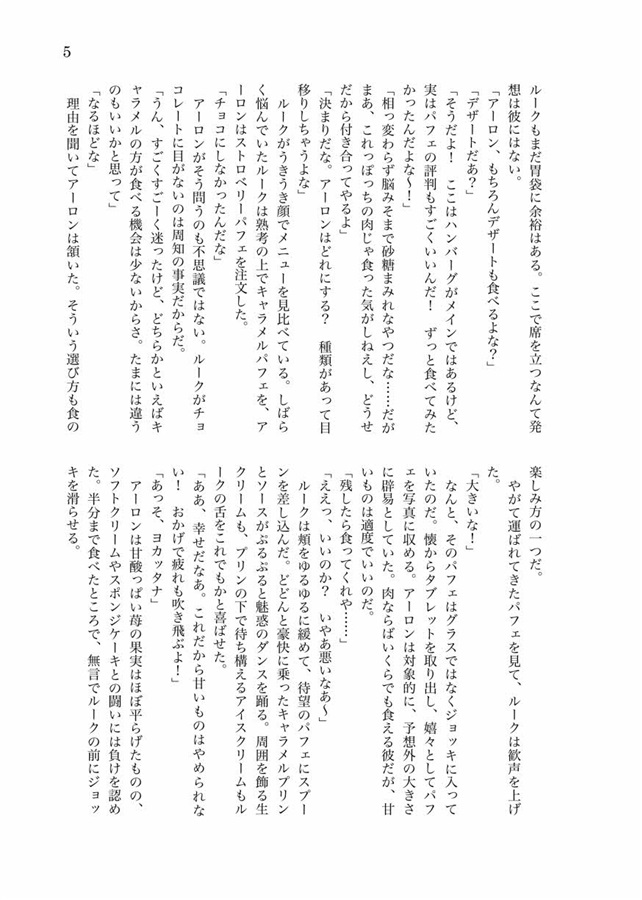 5
ルークもまだ胃袋に余裕はある。ここで席を立つなんて発
想は彼にはない。
「アーロン、もちろんデザートも食べるよな?」
「デザートだあ?」
「そうだよ! ここはハンバーグがメインではあるけど、
実はパフェの評判もすごくいいんだ! ずっと食べてみた
かったんだよな〜!」
「相っ変わらず脳みそまで砂糖まみれなやつだな……だが
まあ、これっぽっちの肉じゃ食った気がしねえし、どうせ
だから付き合ってやるよ」
「決まりだな。アーロンはどれにする? 種類があって目
移りしちゃうよな」
ルークがうきうき顔でメニューを見比べている。しばら
く悩んでいたルークは熟考の上でキャラメルパフェを、ア
ーロンはストロベリーパフェを注文した。
「チョコにしなかったんだな」
アーロンがそう問うのも不思議ではない。ルークがチョ
コレートに目がないのは周知の事実だからだ。
「うん、すごくすごーく迷ったけど、どちらかといえばキ
ャラメルの方が食べる機会は少ないからさ。たまには違う
のもいいかと思って」
「なるほどな」
理由を聞いてアーロンは頷いた。そういう選び方も食の
楽しみ方の一つだ。
やがて運ばれてきたパフェを見て、ルークは歓声を上げ
た。
「大きいな!」
なんと、そのパフェはグラスではなくジョッキに入って
いたのだ。懐からタブレットを取り出し、嬉々としてパフ
ェを写真に収める。アーロンは対象的に、予想外の大きさ
に辟易としていた。肉ならばいくらでも食える彼だが、甘
いものは適度でいいのだ。
「残したら食ってくれや……」
「ええっ、いいのか? いやあ悪いなあ〜」
ルークは頬をゆるゆるに緩めて、待望のパフェにスプー
ンを差し込んだ。どどんと豪快に乗ったキャラメルプリン
とソースがぷるぷると魅惑のダンスを踊る。周囲を飾る生
クリームも、プリンの下で待ち構えるアイスクリームもル
ークの舌をこれでもかと喜ばせた。
「ああ、幸せだなあ。これだから甘いものはやめられな
い! おかげで疲れも吹き飛ぶよ!」
「あっそ、ヨカッタナ」
アーロンは甘酸っぱい苺の果実はほぼ平らげたものの、
ソフトクリームやスポンジケーキとの闘いには負けを認め
た。半分まで食べたところで、無言でルークの前にジョッ
キを滑らせる。